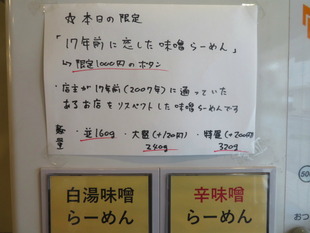 ☆本日の限定
「17年前に恋した味噌らーめん」
↳限定1000円のボタン
・店主が17年前(2007年)に通っていた
あるお店をリスペクトした味噌らーめんです
麺量 ・並160g ・大盛(+120円) ・特盛(+200円)
240g 320g
白湯味噌
らーめん
辛味噌
らーめん